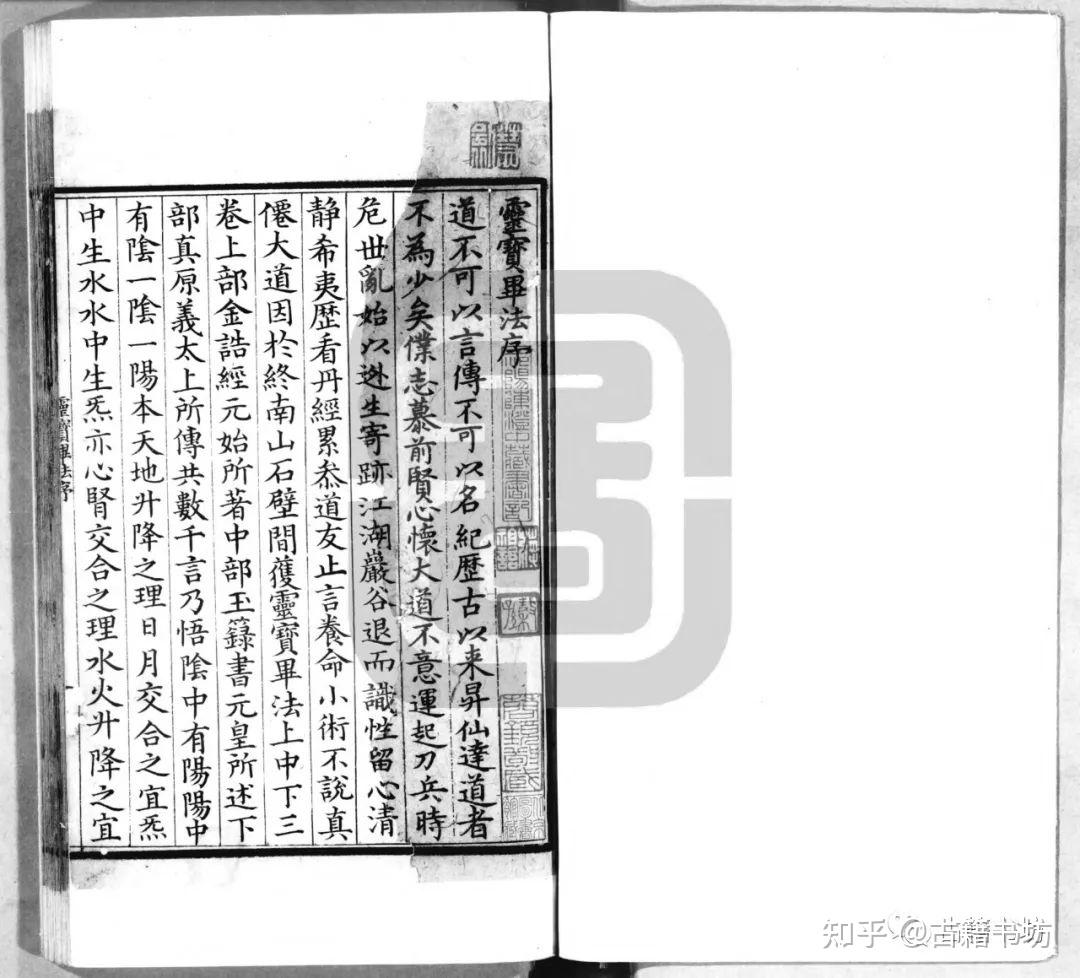 靈寶畢法序
道不可以言傳不可以名紀歷古以来昇仙達道者
不為少矣僕志慕前賢心懷大道不意運起刀兵時
危世亂始以逃生寄跡江湖巖谷退而識性留心清
静希夷歷看丹經累叅道友止言養命小術不說真
僊大道因於終南山石壁間獲靈寶畢法上中下三
卷上部金誥經元始所著中部玉籙書元皇所述下
部真原義太上所傳共數千言乃悟陰中有陽陽中
有陰一陰一陽本天地升降之理日月交合之宜炁
中生水水中生炁亦心腎交合之理水火升降之宜
靈寶畢法序
一
知乎 @古籍书坊